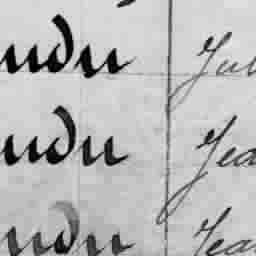 udu Jul
udu Jea
udu Jea